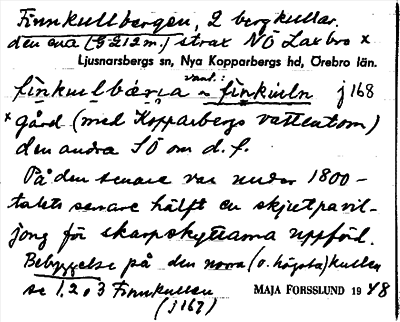 Finnkullbergen, 2 bergkullar.
den ena (§ 212 m.) strax NÖ Laxbro x
Ljusnarsbergs sn, Nya Kopparbergs hd, Örebro län.
vanl.:
finkulbærja ~ finkuln j168
x gård (med Kopparbergs vattentorn)
den andra SÖ om d. f.
På den senare var under 1800-
talets senare hälft en skjutpavil-
jong för skarpskyttarna uppförd.
Bebyggelse på den norra (o. högsta) kullen
se 1, 2 o 3 Finnkullen
(j167)
MAJA FORSSLUND 1948